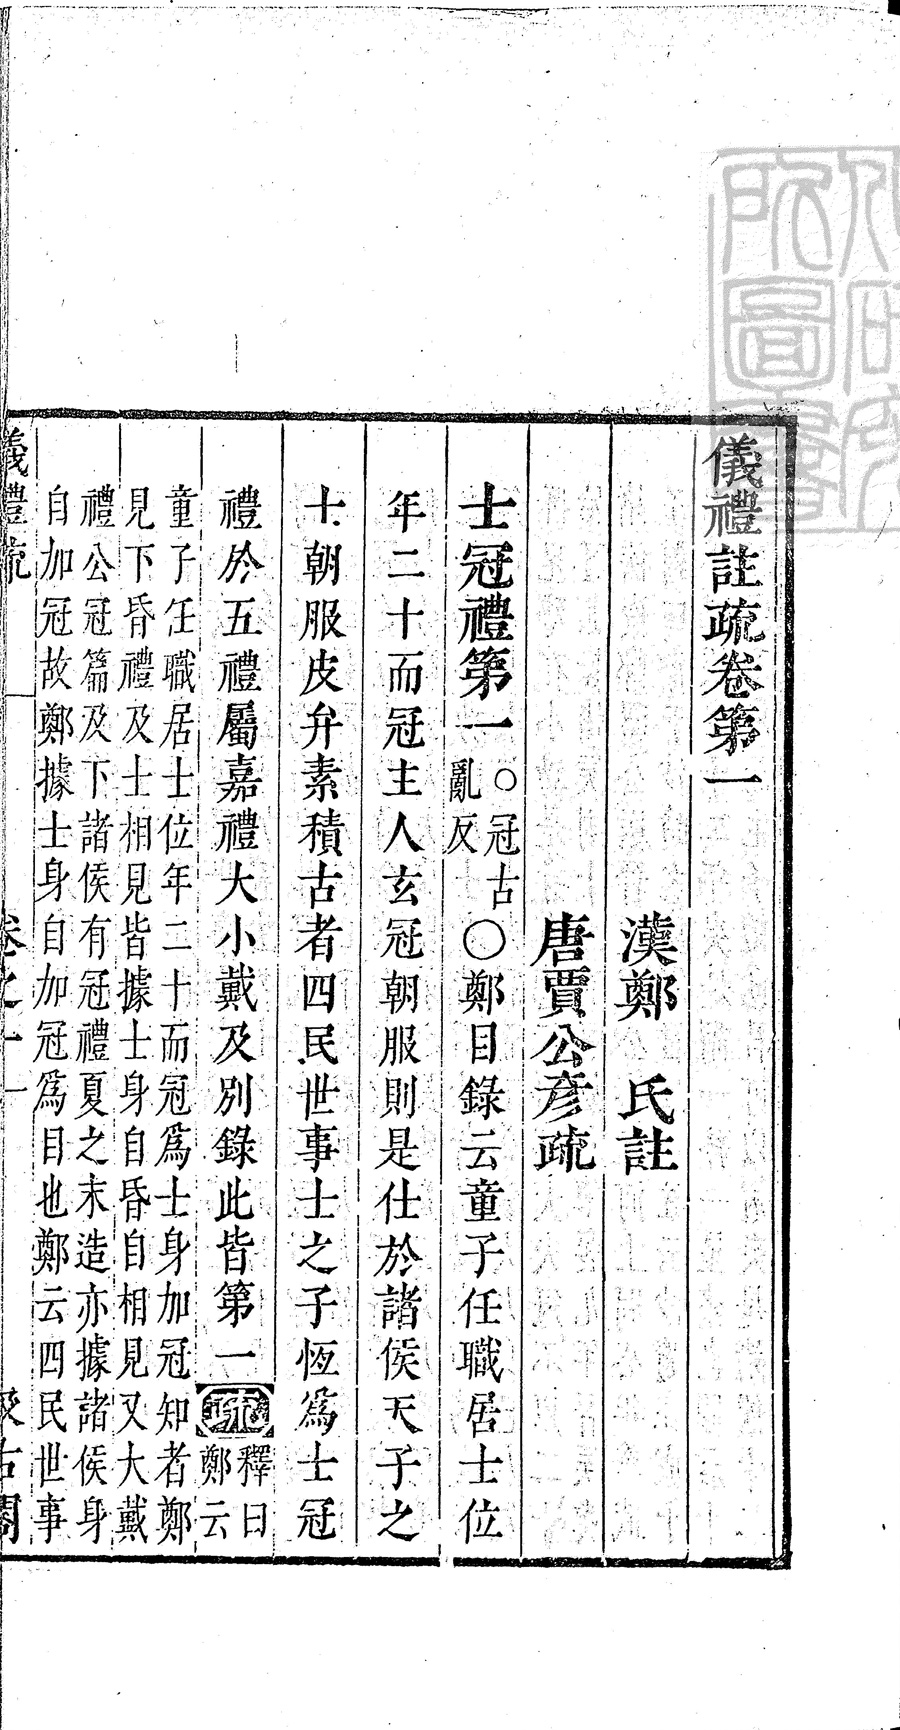 儀禮註疏卷第一
漢鄭　氏註
唐賈公彥疏
士冠禮第一
○冠古
亂反
○鄭目錄云童子任職居士位
年二十而冠主人玄冠朝服則是仕於諸侯天子之
士朝服皮弁素積古者四民世事士之子恆爲士冠
禮於五禮屬嘉禮大小戴及別錄此皆第一
疏
釋曰
鄭云
童子任職居士位年二十而冠爲士身加冠知者鄭
見下昏禮及士相見皆據士身自昏自相見又大戴
禮公冠篇及下諸侯有冠禮夏之末造亦據諸侯身
自加冠故鄭據士身自加冠爲目也鄭云四民世事
儀禮疏　卷之一　一